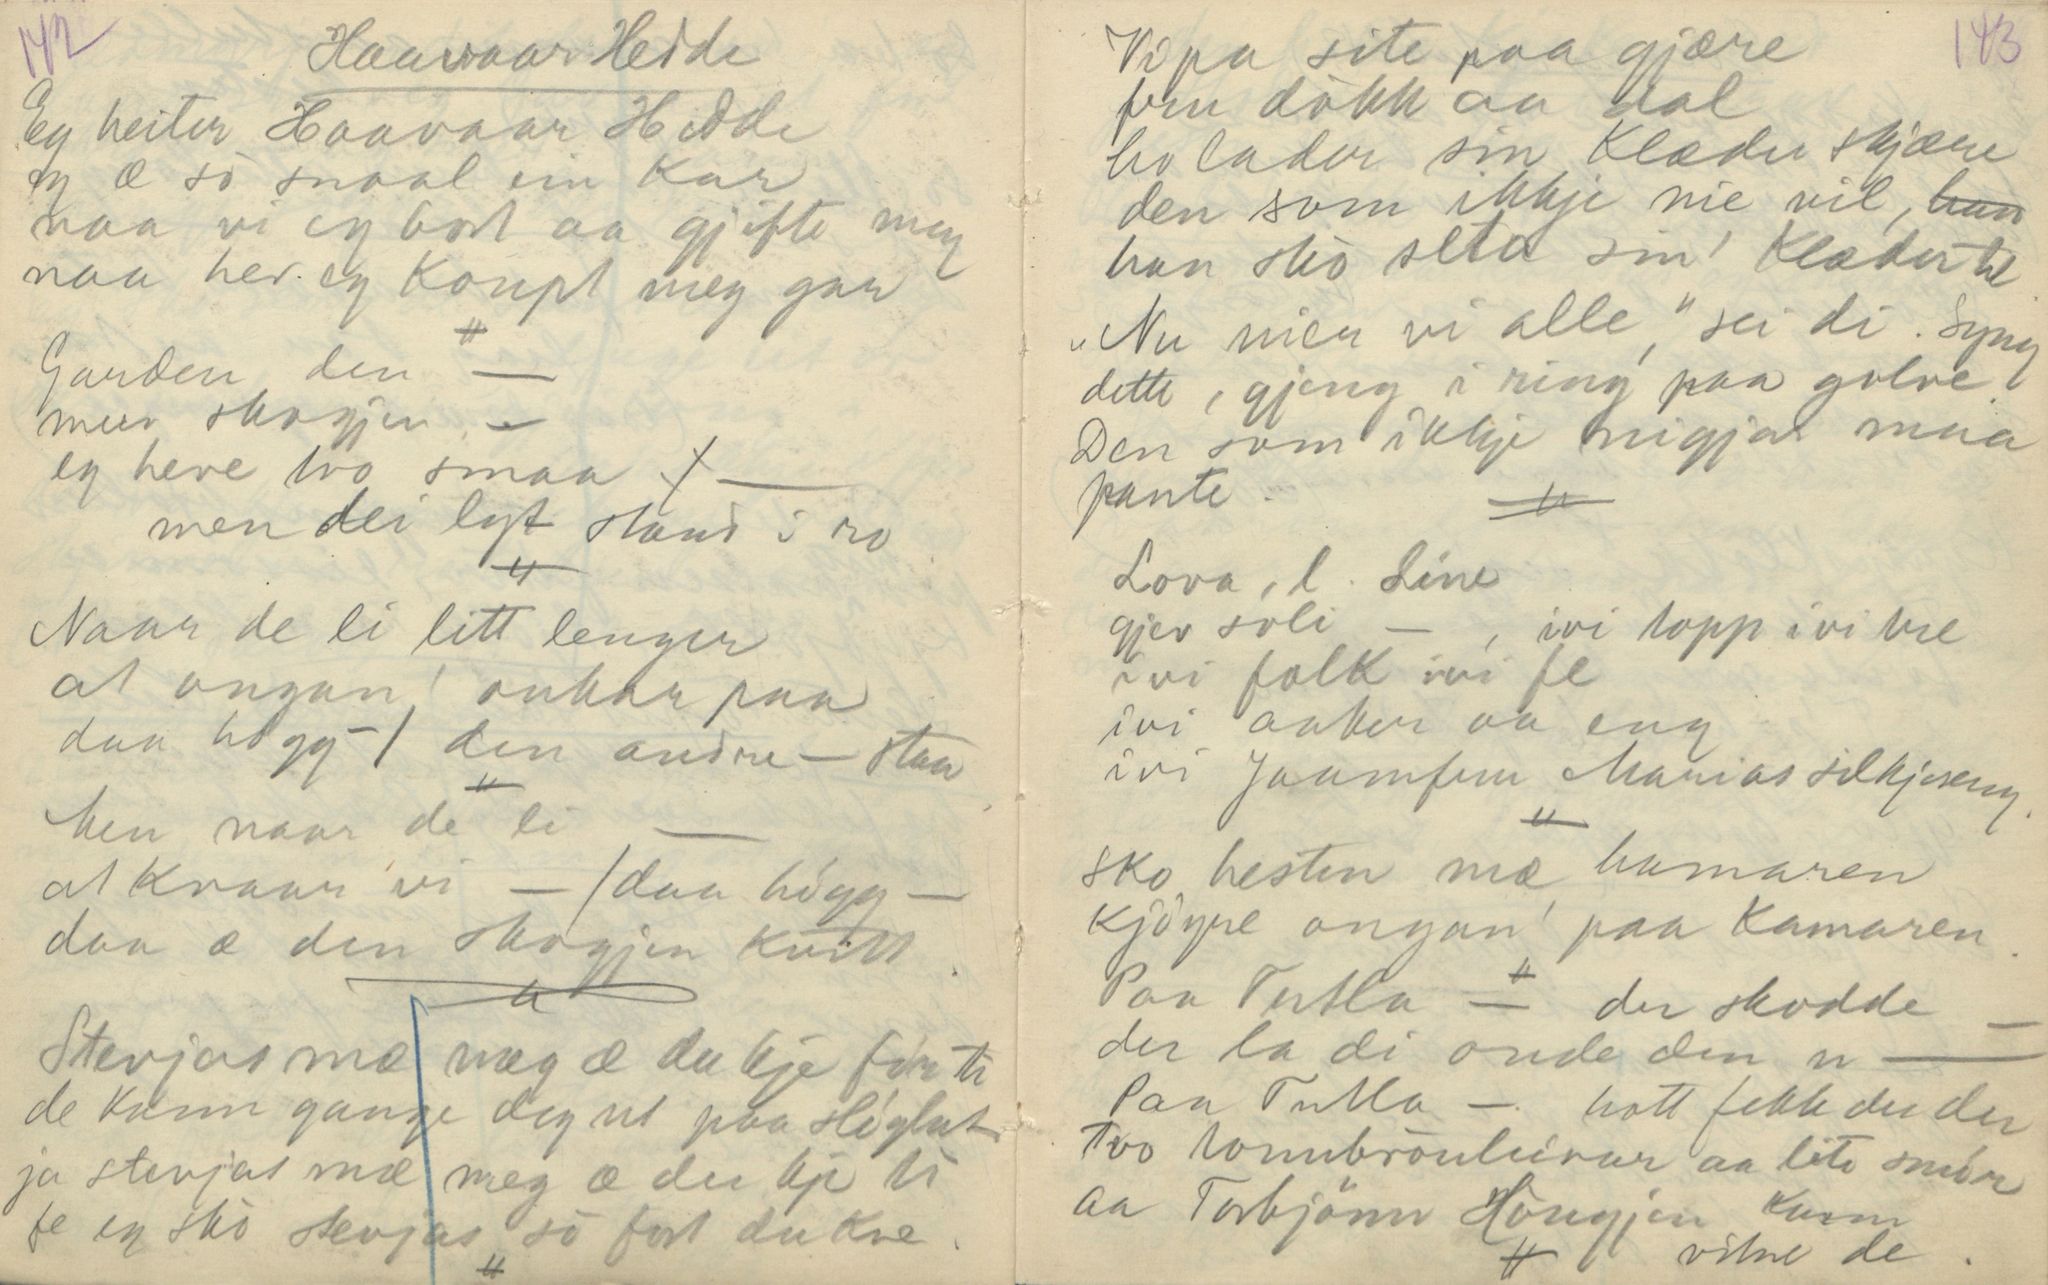 142
Haavaar Hedde
Eg heiter Haavaar Hedde
eg æ sò snaal ein Kar
naa vi eg bort aa gjifte meg
naa hev eg Kòupt meg gar
"
Garden den —
meer skogjen —
eg heve tvo smaa —
men dei lyt stand i ro
"
Naar de li litt lenger
at ongan' onkar paa
daa högg — / den andre — staa
"
Men naar de li —
at Kvaar vi — / daa högg —
daa æ den skogjen Kvitt.
"
Stevjas mæ meg æ du kje för ti
de Kann gange deg ut paa
ja stevjas mæ meg æ du kje ti
fe eg skò stevjas sò fort du Kve.
"
143
Vipa site paa gjære
fru dòkk aa dal
ho lader sin Klæder skjære
den som ikkje nie vil, han
han skò seta sin' Klæder til
"Nu nier vi alle," sei di. Syng
dette, gjeng i ring paa golve.
Den som ikkje nigjar maa
pante.
"
Lova, l. Line
gjev soli —, ivi topp ivi tre
ivi folk ivi fe
ivi aaker aa eng
ivi Jaamfru Marias silkjeseng.
"
Sko hesten mæ hamaren
Kjöype ongan' paa Kamaren.
"
Paa Tutla — der skodde —
der la di onde den n —
Paa Tutla —. hott fekk du der
Tvo tonnbröuleivar aa lite smör
aa Torbjönn Höugjen Kann
vitne de.
"